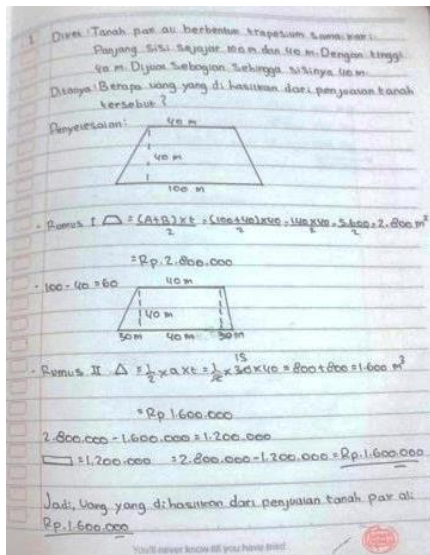 1 Diket : Tanah pak ali berbentuk trapesium sama kaki.
Panjang sisi sejajar 100 m dan 40 m. Dengan tinggi
40 m. Dijual sebagian sehingga sisinya 40 m.
Ditanya : Berapa uang yang di hasilkan dari penjualan tanah
tersebut ?
Penyelesaian :
40 m
40 m
100 m
- Rumus I = (A+B) x t / 2 = (100+40) x 40 / 2 = 140 x 40 / 2 = 5.600 / 2 = 2.800 m²
= Rp. 2.800.000
- 100 - 40 = 60
40 m
40 m
30 m 40 m 30 m
- Rumus II Δ = 1/2 x a x t = 1/2 x 30 x 40 = 800 + 800 = 1.600 m³
15
= Rp 1.600.000
2.800.000 - 1.600.000 = 1.200.000
= 1.200.000 = 2.800.000 - 1.200.000 = Rp. 1.600.000
Jadi, Uang yang dihasilkan dari penjualan tanah pak ali
Rp. 1.600.000
You'll never know till you have tried